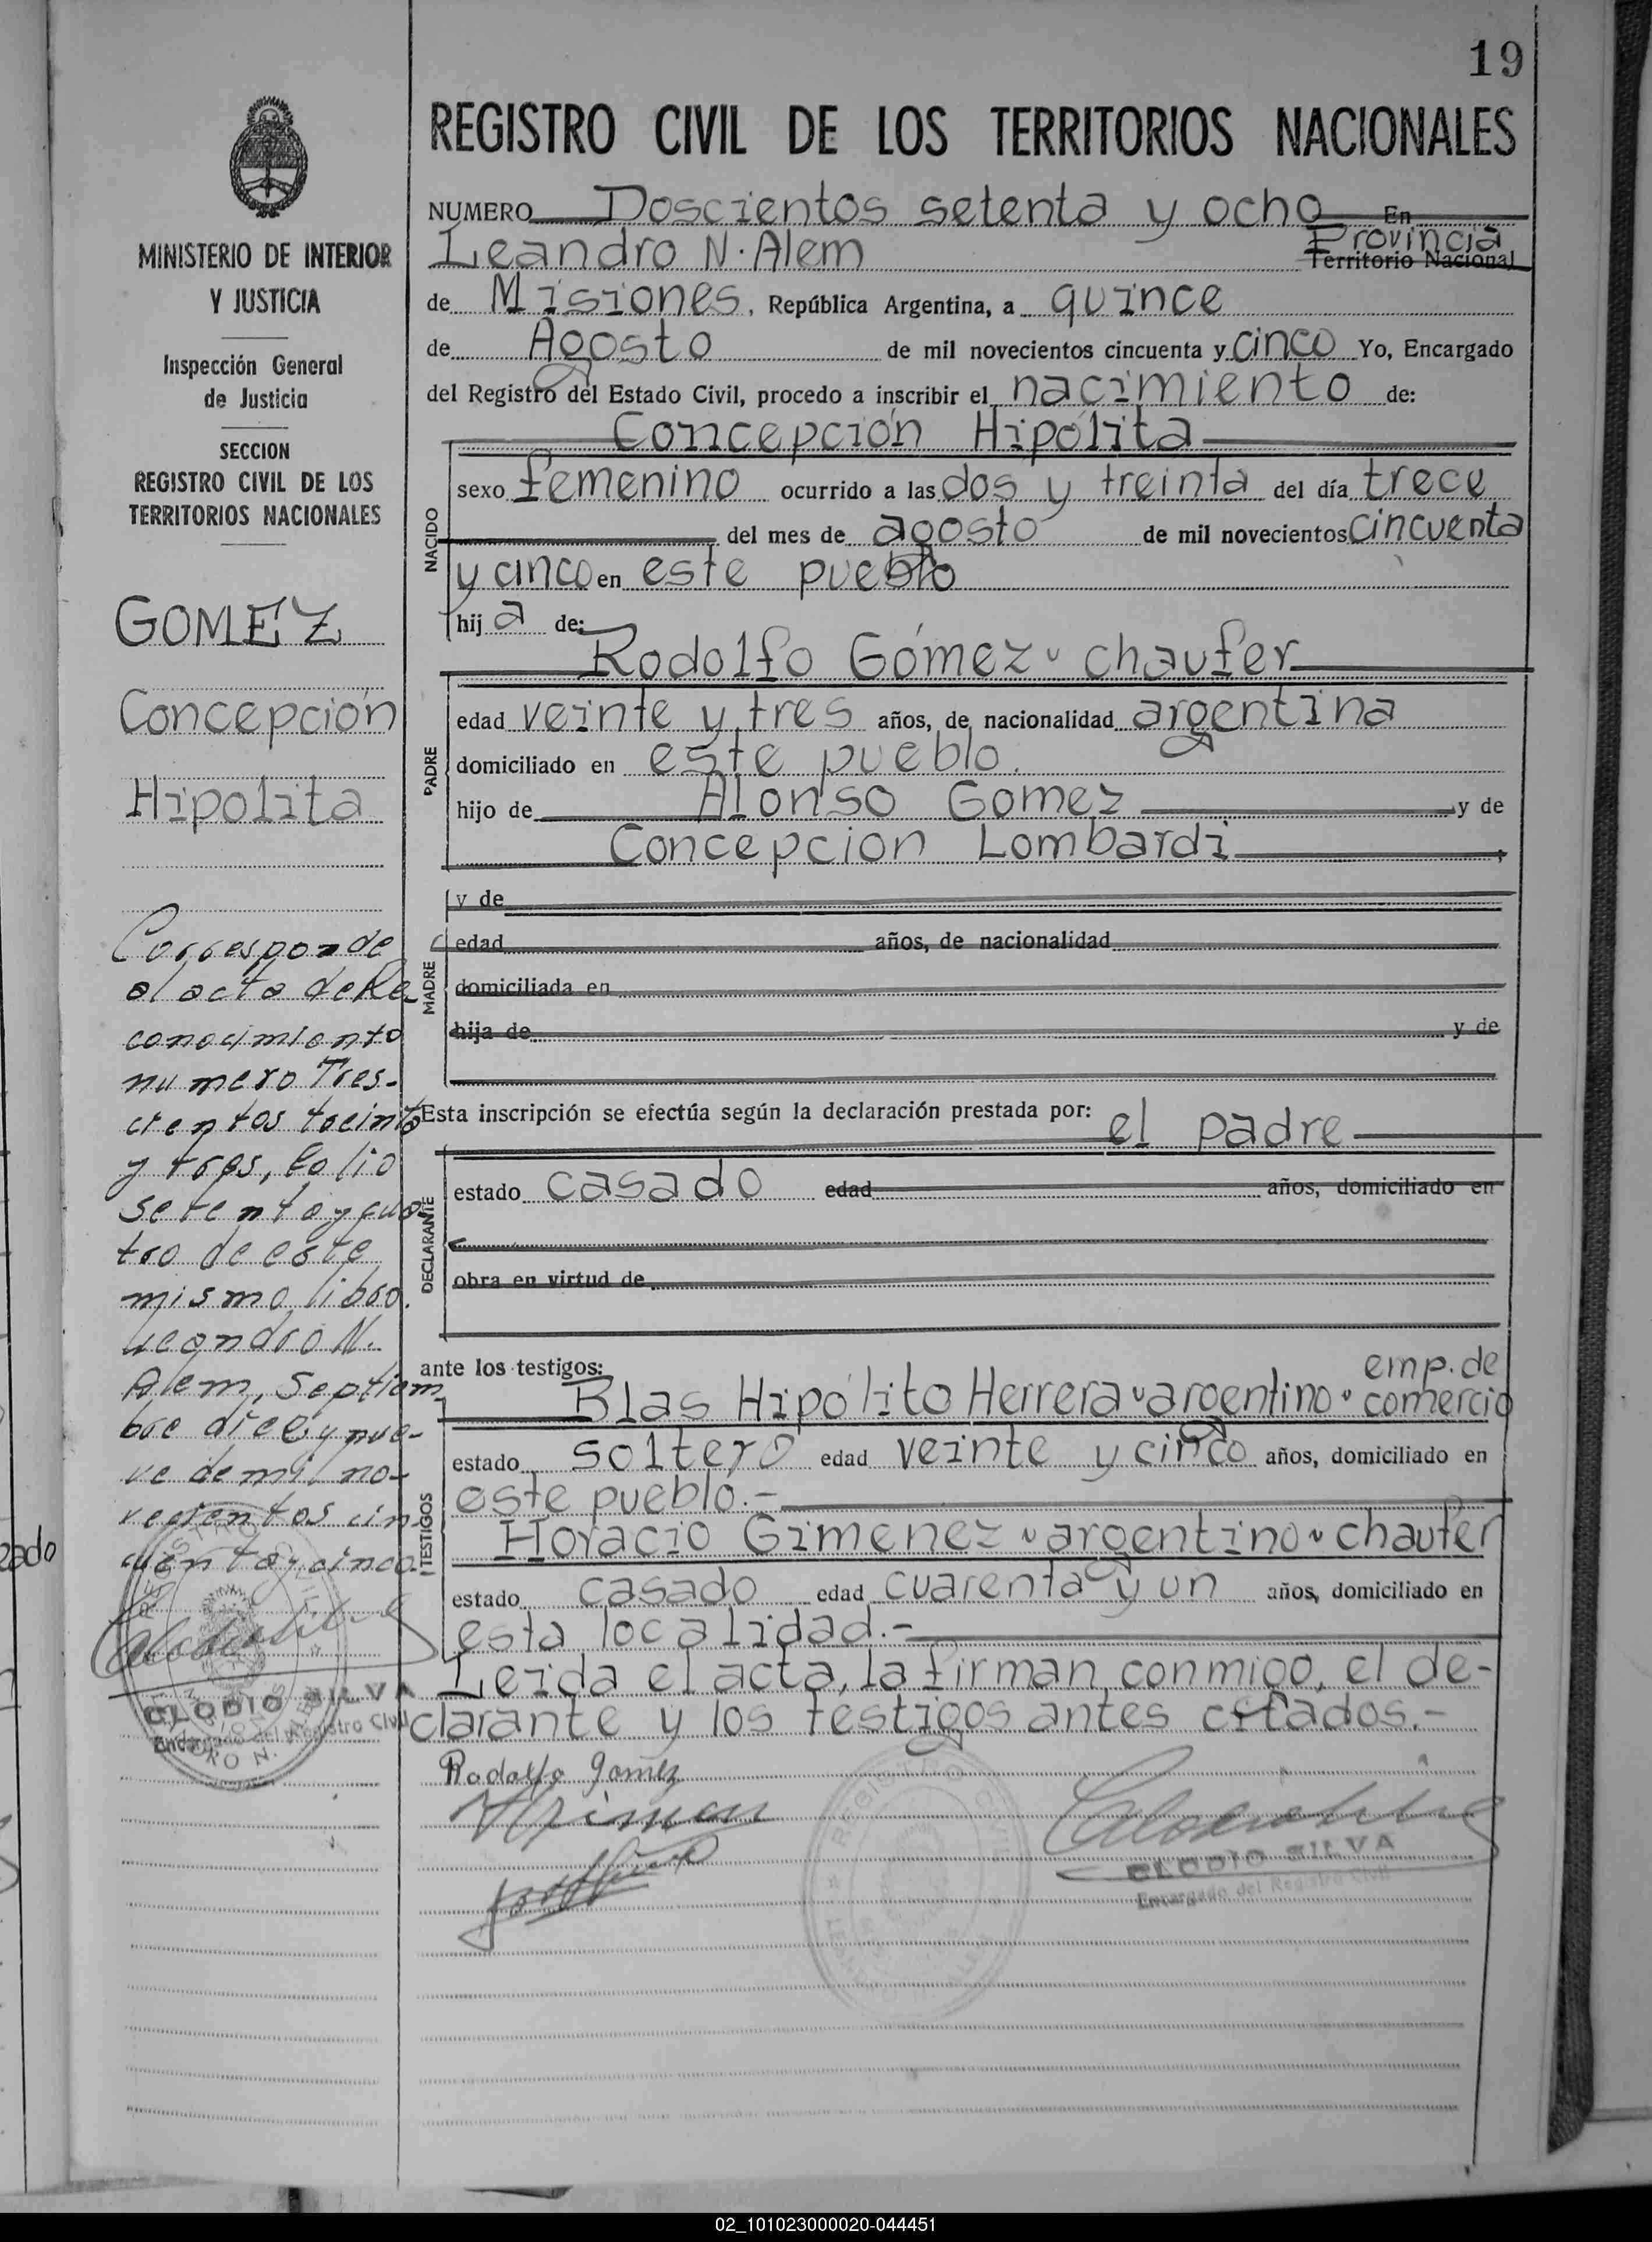 19
REGISTRO CIVIL DE LOS TERRITORIOS NACIONALES
MINISTERIO DE INTERIOR
Y JUSTICIA
Inspección General
de Justicia
SECCION
REGISTRO CIVIL DE LOS
TERRITORIOS NACIONALES
GOMEZ
Concepción
Hipolita
Corresponde
al acta de Re
conocimiento
numero Tres-
cientos treinta
y tres, folio
setenta y cua
tro de este
mismo libro.
Leandro N.
Alem, Septiem
bre diez y nue-
ve de mil no-
vecientos cin
cuenta y cinco.
CLODIO SILVA
Encargado del Registro Civil
NUMERO Doscientos setenta y ocho En
Leandro N. Alem Provincia
Territorio Nacional
de Misiones, República Argentina, a quince
de Agosto de mil novecientos cincuenta y cinco Yo, Encargado
del Registro del Estado Civil, procedo a inscribir el nacimiento de:
Concepción Hipólita
NACIDO
sexo femenino ocurrido a las dos y treinta del día trece
del mes de agosto de mil novecientos cincuenta
y cinco en este pueblo
hija de:
Rodolfo Gómez chaufer
PADRE
edad veinte y tres años, de nacionalidad argentina
domiciliado en este pueblo.
hijo de Alonso Gomez y de
Concepcion Lombardi
MADRE
y de
edad años, de nacionalidad
domiciliada en
hija de y de
Esta inscripción se efectúa según la declaración prestada por: el padre
DECLARANTE
estado casado edad años, domiciliado en
obra en virtud de
ante los testigos: emp. de
Blas Hipólito Herrera argentino comercio
TESTIGOS
estado soltero edad veinte y cinco años, domiciliado en
este pueblo.-
Horacio Gimenez argentino chaufer
estado casado edad cuarenta y un años, domiciliado en
esta localidad.-
Leida el acta, la firman conmigo, el de-
clarante y los testigos antes citados.-
Rodolfo Gomez
REGISTRO CIVIL
CLODIO SILVA
Encargado del Registro Civil
02_101023000020-044451